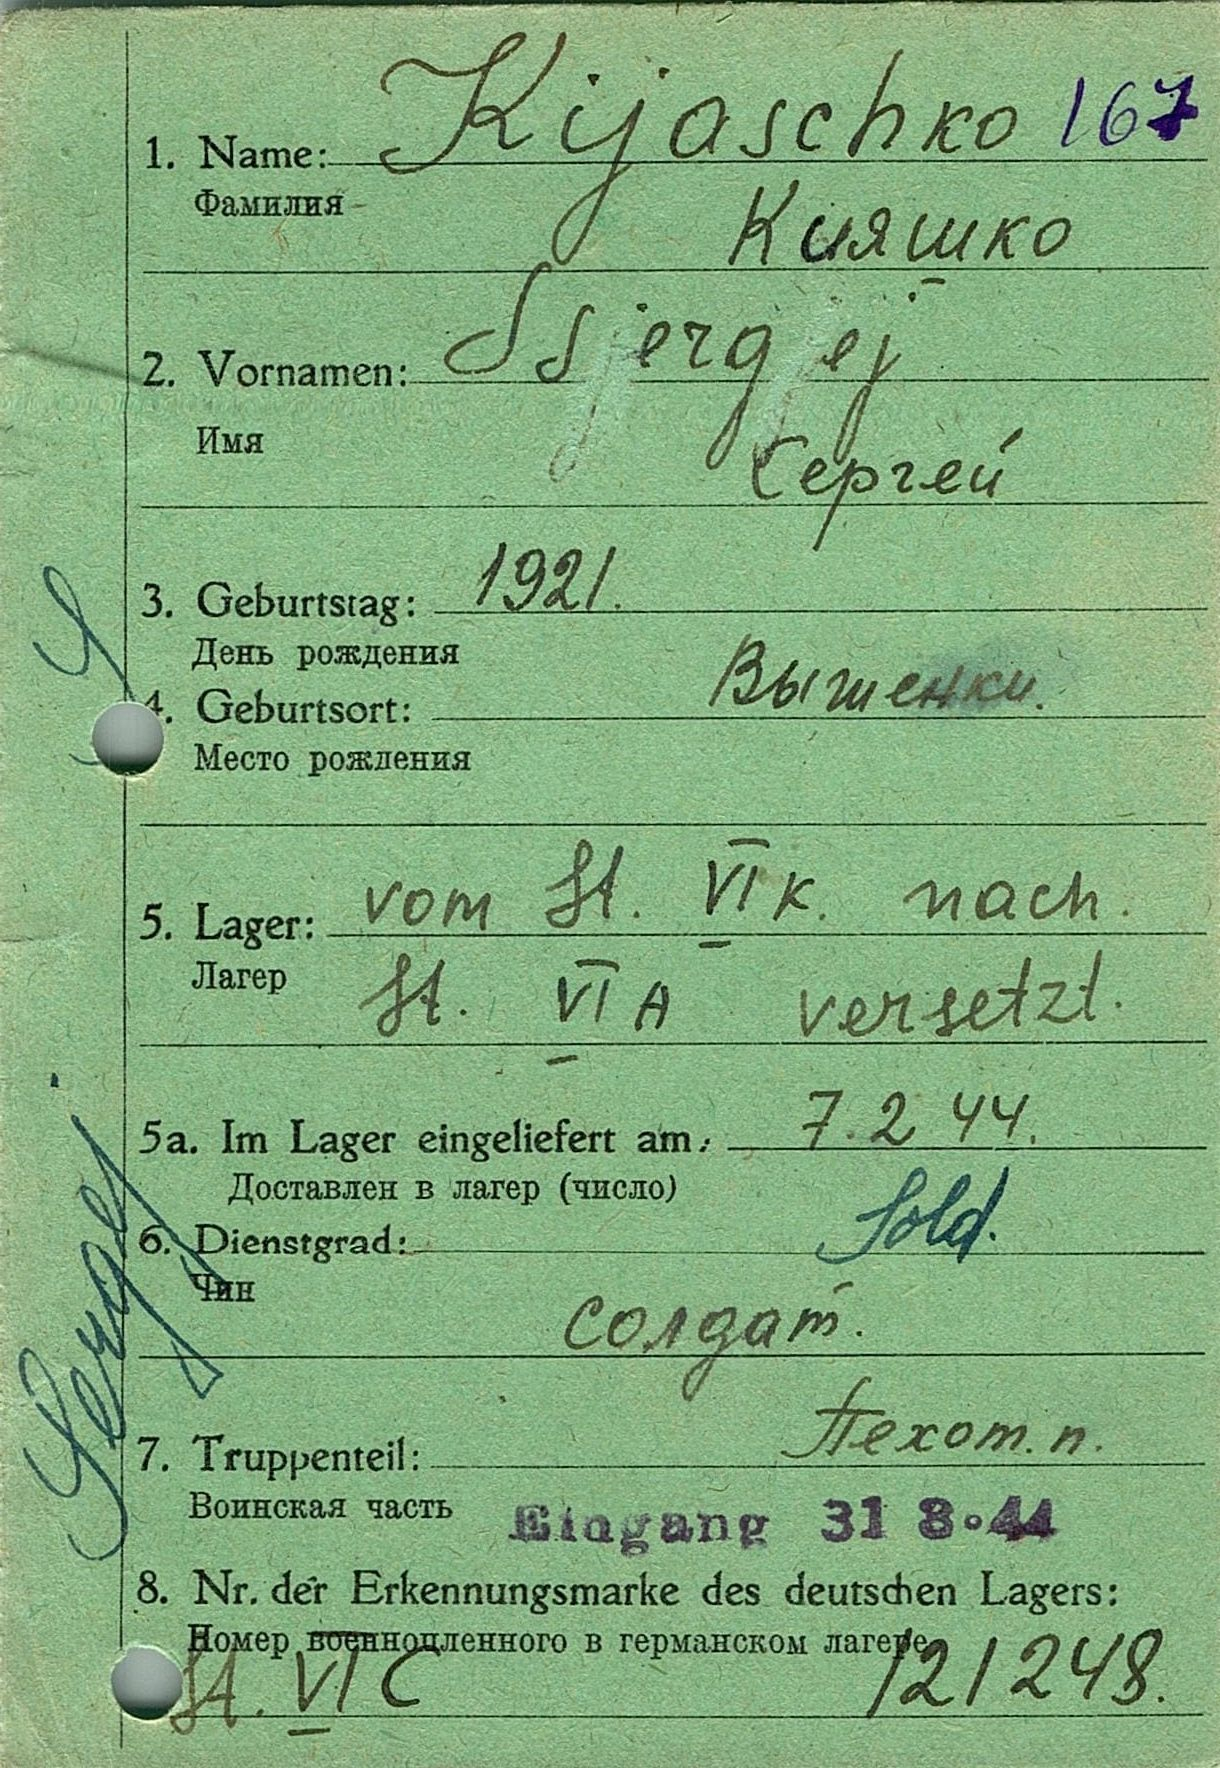 1. Name: Kijaschko 167
Фамилия
Кияшко
2. Vornamen: Ssjergjej
Имя
Сергей
3. Geburtstag: 1921.
День рождения
4. Geburtsort: Вышенки.
Место рождения
5. Lager: vom St. VI K. nach.
Лагер
St. VI A versetzt.
5a. Im Lager eingeliefert am: 7.2 44.
Доставлен в лагер (число)
6. Dienstgrad: Sold.
Чин
солдат.
7. Truppenteil: Пехот. п.
Воинская часть
Eingang 31 8.44
8. Nr. der Erkennungsmarke des deutschen Lagers:
Номер военнопленного в германском лагере
St. VI C 121248.
Sergej